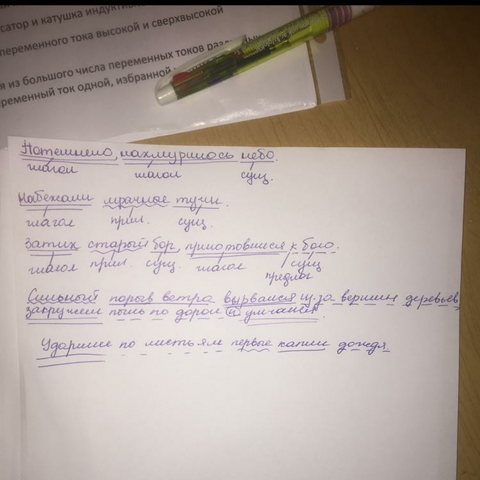 сатор и катушка индуктивн
переменного тока высокой и сверхвысокой
я из большого числа переменных токов разл
ременный ток одной, избранной
Потемнело, нахмурилось небо.
глагол глагол сущ.
Набежали мрачные тучи.
глагол прил. сущ.
Затих старый бор, приготовился к бою.
глагол прил. сущ. глагол сущ
предлог
Сильный порыв ветра вырвался из-за вершин деревьев,
закружил пыль по дороге и умчался.
Ударили по листьям первые капли дождя.